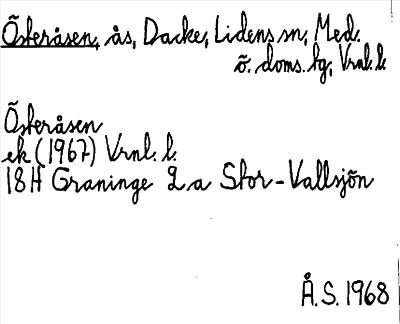 Österåsen, ås, Dacke, Lidens sn, Med.
ö. doms. bg, Vrnl. l.
Österåsen
ek (1967) Vrnl. l.
18H Graninge 2 a Stor-Vallsjön
Å.S. 1968